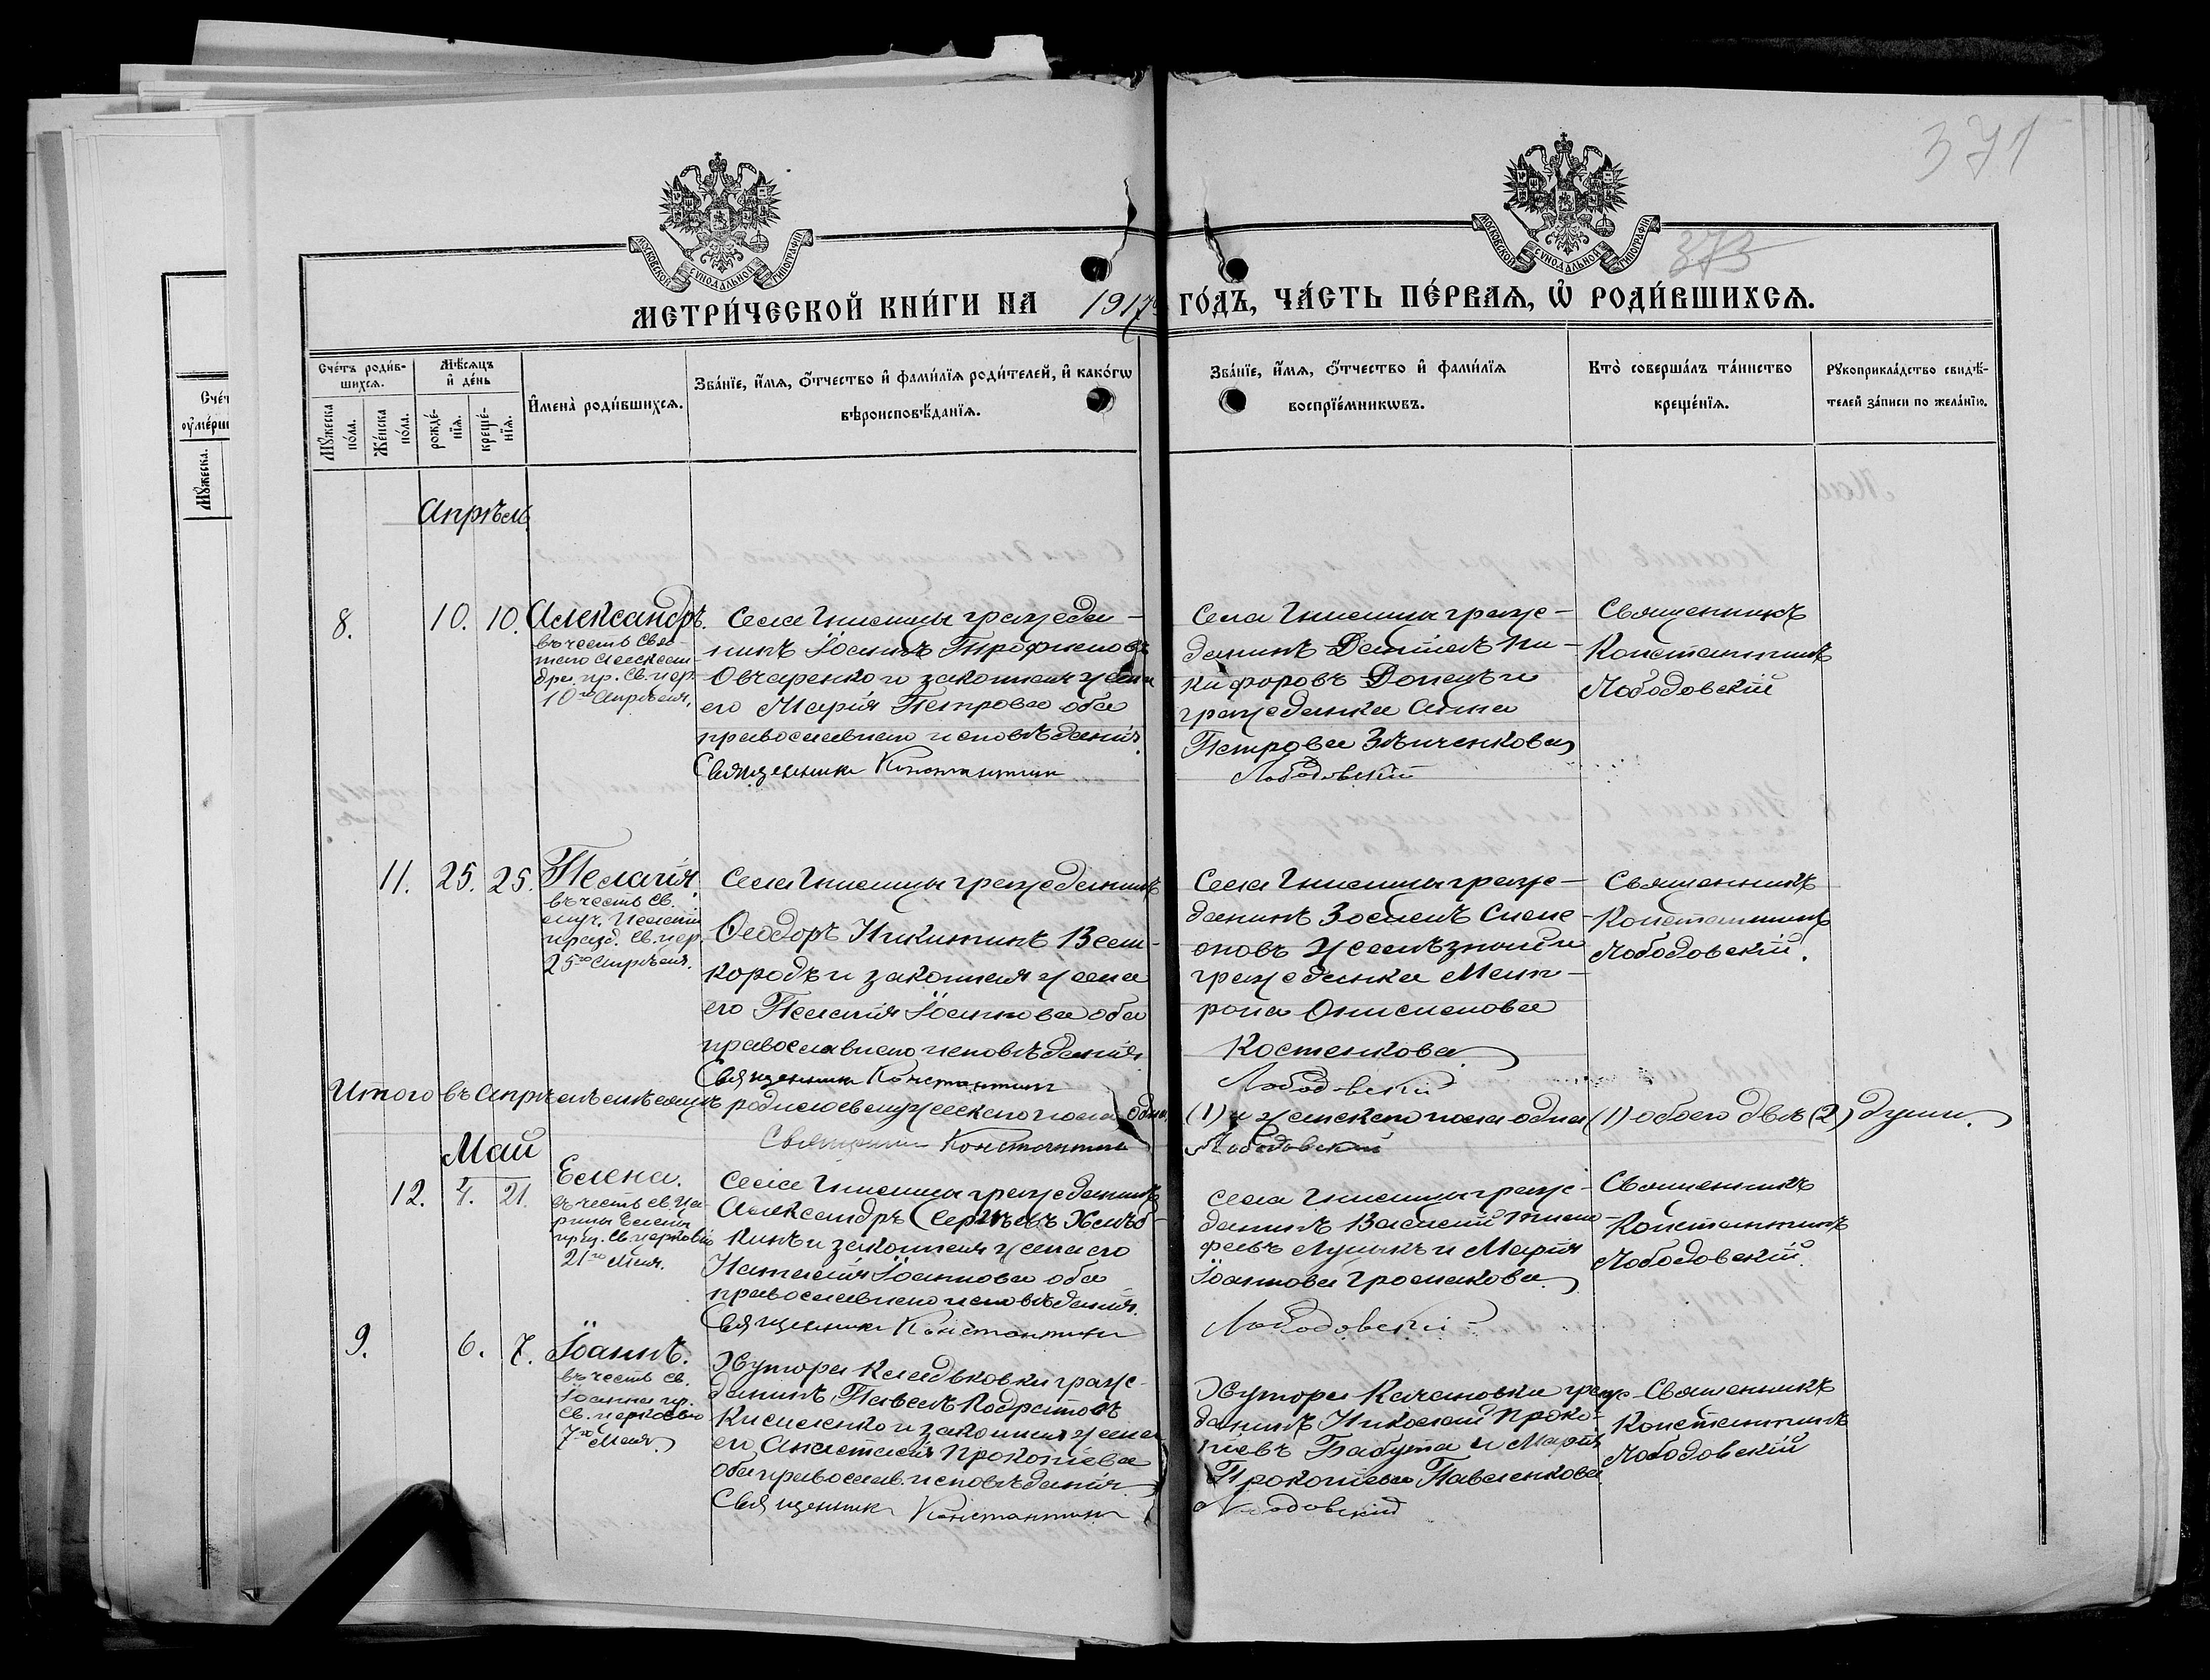 371
373
МОСКОВСКОЙ СѴНОДАЛЬНОЙ ТИПОГРАФІИ
МОСКОВСКОЙ СѴНОДАЛЬНОЙ ТИПОГРАФІИ
МЕТРИ́ЧЕСКОЙ КНИ́ГИ НА 1917й ГО́ДЪ, ЧА́СТЬ ПЕ́РВАѦ, Ѡ҆ РОДИ́ВШИХСѦ.
Сче́тъ роди́в-
шихсѧ.
Мѣ́сѧцъ
и҆ де́нь
И҆мена̀ роди́вшихсѧ.
Зва́нїе, и҆́мѧ, ѻ҆́тчество и҆ фами́лїѧ роди́телей, и҆ како́гѡ
вѣроисповѣ́данїѧ.
Зва́нїе, и҆́мѧ, ѻ҆́тчество и҆ фами́лїѧ
воспрїе́мникѡвъ.
Кто̀ соверша́лъ та́инство
креще́нїѧ.
Рꙋкоприкла́дство свидѣ́-
телей за́писи по жела́нїю.
Мꙋ́жеска
по́ла.
Же́нска
по́ла.
рожде́-
нїѧ.
креще́-
нїѧ.
Сче́т
оу҆ме́рш
Мꙋ́жеска.
Апрѣль
8. 10. 10. Александръ.
въ честь Свя-
таго Алексан-
дра, пр. Св. цер.
10го Апрѣля.
Села Гнилицы гражда-
нинъ Іоаннъ Трофимовъ
Овчаренко и законная жена
его Марія Петрова оба
православнаго исповѣданія.
Священникъ Константинъ
Села Гнилицы граж-
данинъ Даніилъ Ни-
кифоровъ Донецъ и
гражданка Анна
Петрова Зѣнченкова
Лободовскій
Священникъ
Константинъ
Лободовскій
11. 25. 25. Пелагія.
въ честь Св.
муч. Пелагіи
празд. Св. цер.
25го Апрѣля.
Села Гнилицы гражданинъ
Ѳеодоръ Никитинъ
и законная жена
его Пелагія Іоаннова оба
православнаго исповѣданія.
Священникъ Константинъ
Села Гнилицы граж-
данинъ Симе-
оновъ Желѣзный и
гражданка Мат-
рона Онисимова
Костенкова
Лободовскій
Священникъ
Константинъ
Лободовскій.
Итого въ Апрѣлѣ мѣсяцѣ родилось мужескаго пола одна (1) и женскаго пола одна (1) обоего двѣ (2) души.
Священникъ Константинъ Лободовскій
Май
12. 4. 21. Елена.
въ честь св. Ца-
рицы Елены
пр. Св. церковію
21го Мая.
Села Гнилицы гражданинъ
Александръ Сергѣевъ Хлѣб-
кинъ и законная жена его
Наталія Іоаннова оба
православнаго исповѣданія.
Священникъ Константинъ
Села Гнилицы граж-
данинъ Василій Тимо-
феевъ и Марія
Іоаннова Громакова
Лободовскій
Священникъ
Константинъ
Лободовскій.
9. 6. 7. Іоаннъ.
въ честь св.
Іоанна пр.
Св. церковью
7го Мая.
Хутора граж-
данинъ Павелъ Кодратовъ
Кисиленко и законная жена
его Анастасія Прокопіева
оба православ. исповѣданія.
Священникъ Константинъ
Хутора Качановки граж-
данинъ Николай Проко-
піевъ Бабута и Марія
Прокопіева Павленкова
Лободовскій
Священникъ
Константинъ
Лободовскій